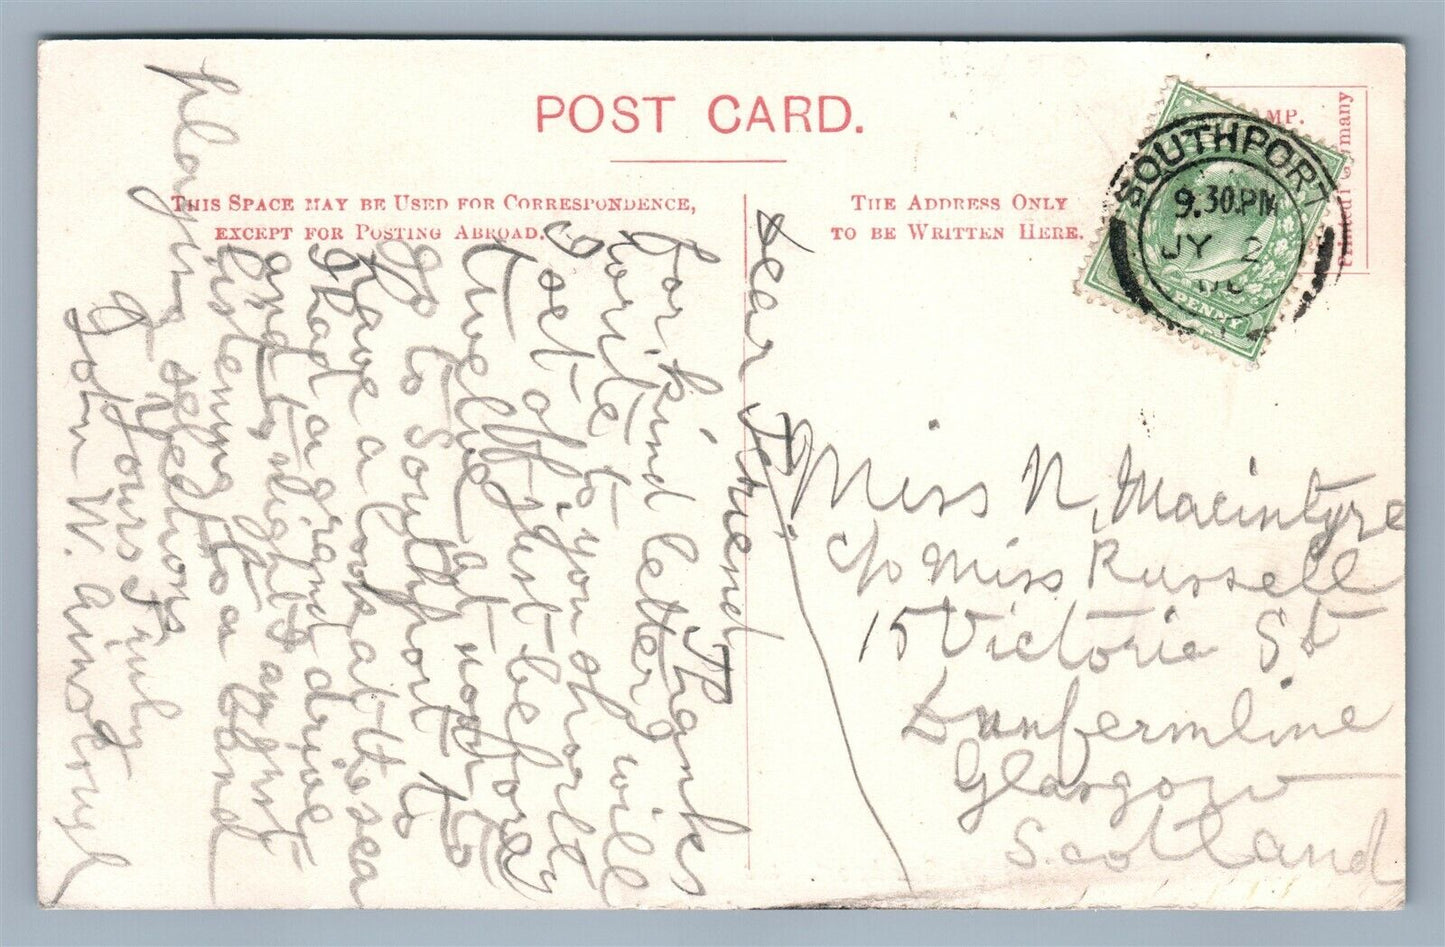 POST CARD.
THIS SPACE MAY BE USED FOR CORRESPONDENCE,
EXCEPT FOR POSTING ABROAD.
THE ADDRESS ONLY
TO BE WRITTEN HERE.
MP.
Printed i Germany
SOUTHPORT
9.30.PM
JY 2
PENNY
Dear Friend Thanks
for kind letter will
write to you shortly
Got off just before
twelve at noon to
go to Southport to
have a look at the sea
I had a grand drive
and to night against
listening to a band
playing selections
I Yours Truly
John W.
Miss N, Macintyre
c/o Miss Russell
15 Victoria St
Dunfermline
Glasgow
Scotland